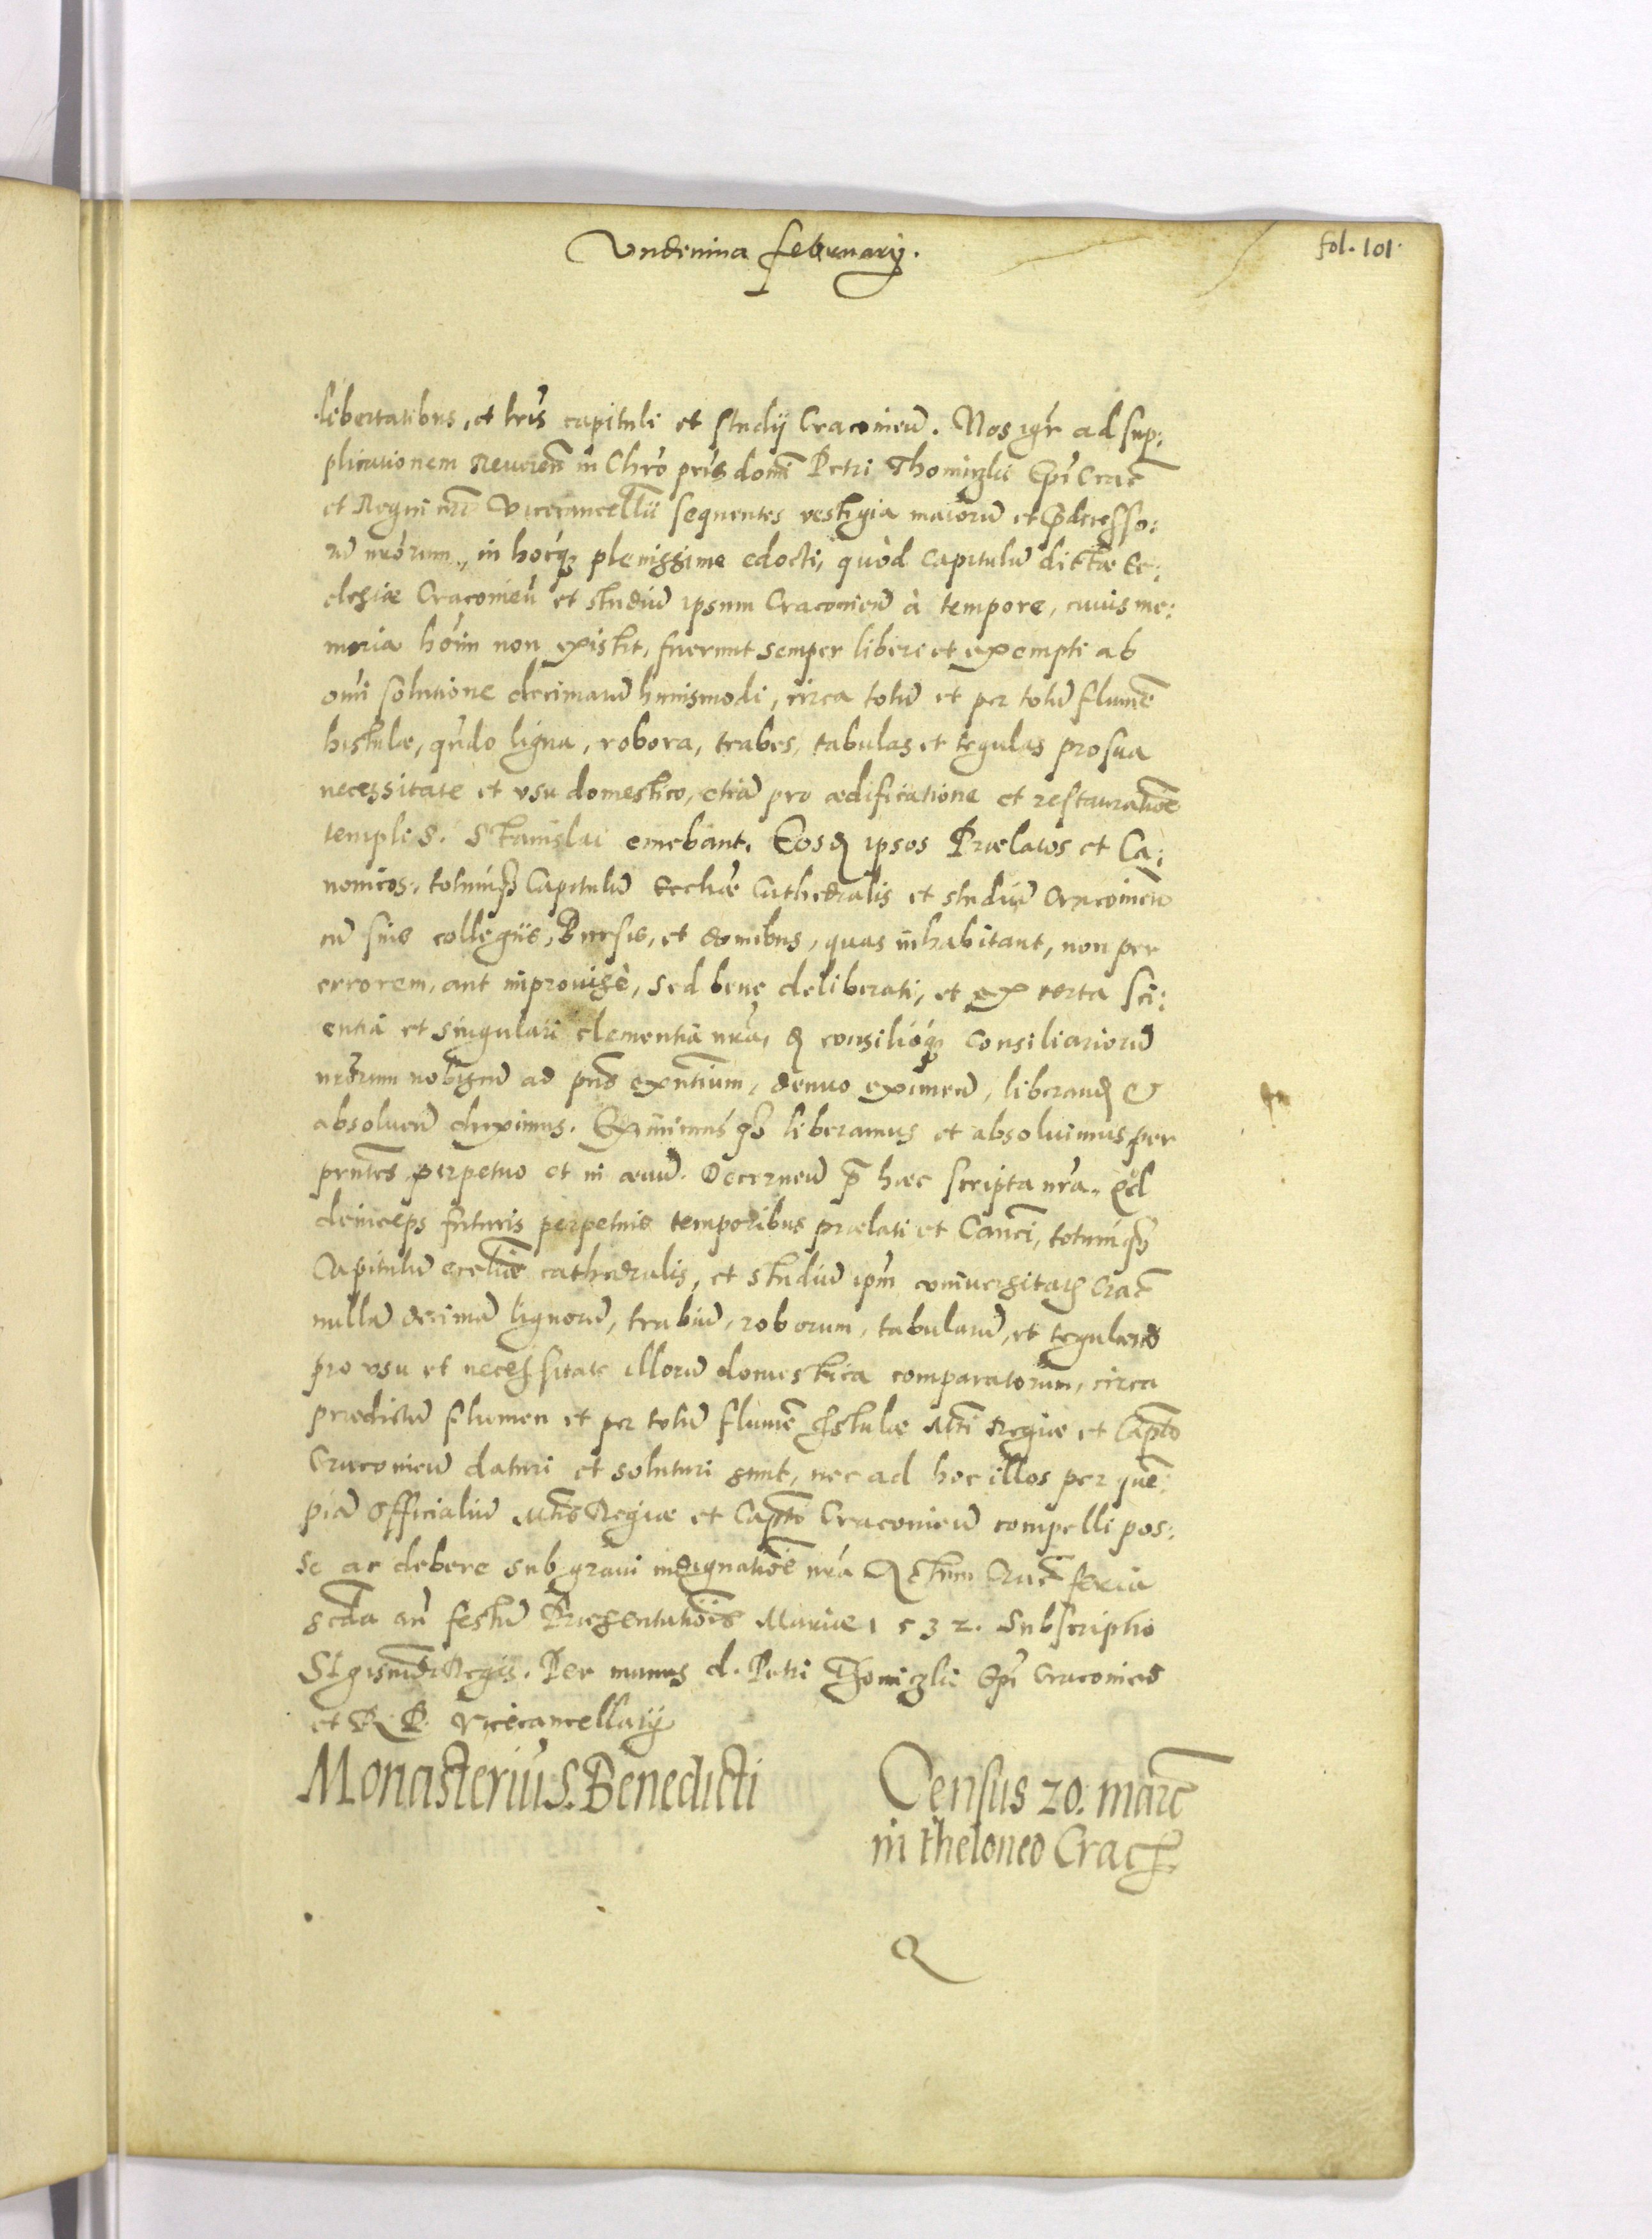 Undecima februarij.
fol. 101.
libertatibus, et lris capituli et studij Cracovien. Nos igr ad sup:
plicationem Reveren in Chro pris domi Petri Thomiczki Epi Crac
et Regni nri Vicecancellii sequentes vestigia maiorū et pdecesso:
rū nrorum, in hocq plenissime edocti, quòd Capitulū dictæ Ec:
clesiæ Cracovien et studiū ipsum Cracovien à tempore, cuius me:
moria hoim non existit, fuerunt semper liberi et exempti ab
omi solutione decimarū huiusmodi, circa totū et per totū flumē
histulæ, qñdo ligna, robora, trabes, tabulas et tegulas pro sua
necessitate et usu domestico, etiā pro ædificatione et restauratioē
templi S. Stanislai emebant. Eosq ipsos Prælatos et Ca:
nonicos, totumq Capitulū Ecclīæ Cathedralis et studiū Cracovien
cū suis collegiis, Bursis, et domibus, quas inhabitant, non per
errorem, aut improvisè, sed bene deliberati, et ex certa sci:
entia et singulari clementia nra, consilioq Consiliariorū
nrorum nobiscū ad pns exntium, denuo eximen, liberand et
absolven duximus. Eximimusq liberamus et absolvimus per
prntes perpetuo et in ævū. Decernen p hæc scripta nra, qd
deinceps futuris perpetuis temporibus prælati et Canci, totumq
Capitulū ecclīæ cathedralis, et studiū ipm universitatis Crac
nullā decimā lignorū, trabiū, roborum, tabularū, et tegularū
pro usu et necessitate illorū domestica comparatorum, circa
prædictū flumen et per totū flumē histulæ Mti Regiæ et Capto
Cracovien daturi et soluturi sunt, nec ad hoc illos per quē:
piā Officialiū Mtis Regiæ et Capto Cracovien compelli pos:
se ac debere sub gravi indignatioē nra Actum Crac feria
scda an festū Præsentatiōis Mariæ 1532. Subscriptio
Sigismūdi Regis. Per manus d. Petri Thomiczki Epi Cracovien
et R. P. Vicecancellarij
Monasteriū S. Benedicti
Census 20. marc
in theloneo Crac